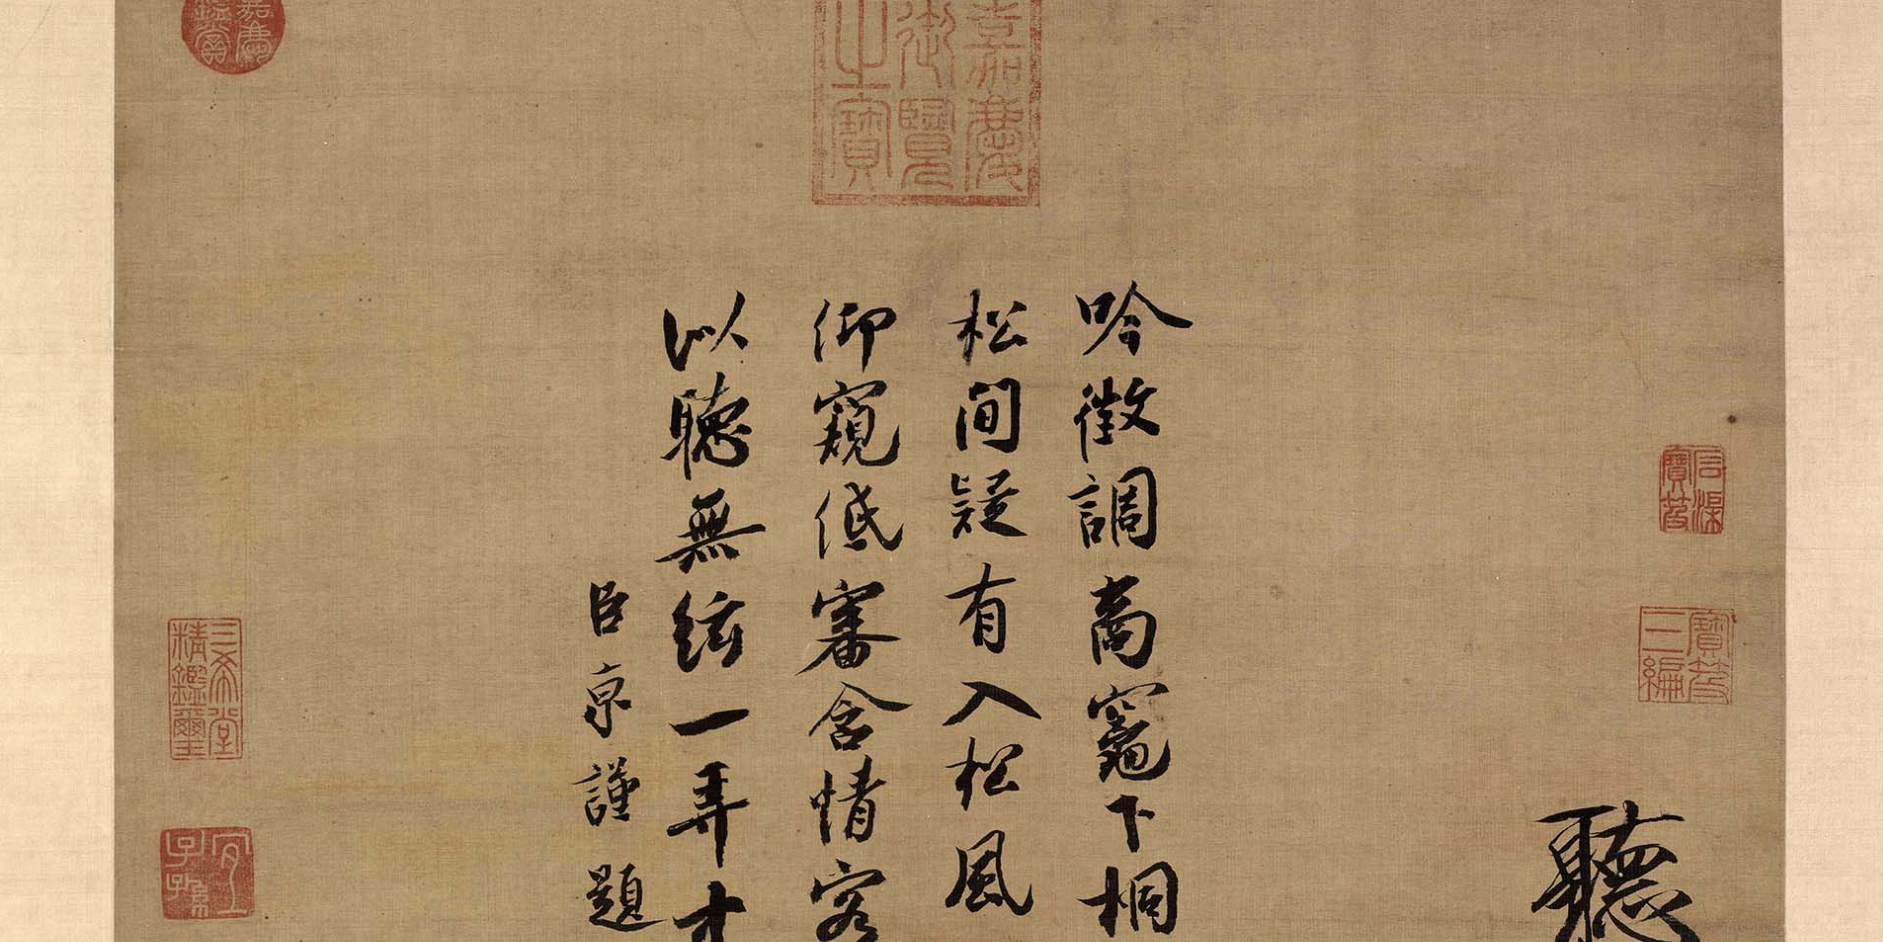 聽
吟徵調商竈下桐
松間疑有入松風
仰窺低審含情客
以聽無絃一弄中
臣京謹題
嘉慶御覽之寶
嘉慶鑑賞
石渠寶笈
寶笈三編
三希堂精鑑璽
宜子孫